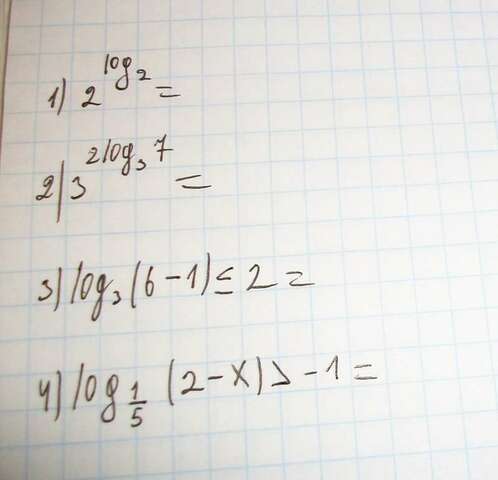 1) 2^log₂ =
2) 3^2log₃ 7 =
3) log₃ (6 - 1) ≤ 2 =
4) log_1/5 (2 - x) > - 1 =